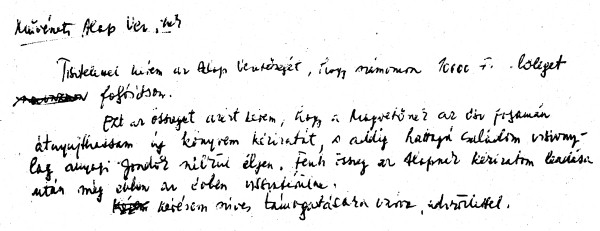 Művészeti Alap Vez.
Tisztelettel kérem az Alap Vezetőségét, hogy számomra 10000 F.
folyósítson.
Ezt az összeget azért kérem, hogy a Magvetőnek az ősz folyamán
átnyujthassam új könyvem kéziratát, s addig hattagú családom viszony-
lag anyagi gondok nélkül éljen. Fenti összeg az Alapnak kéziratom leadása
után még ebben az évben
kérésem szíves támogatására várva, üdvözlettel.